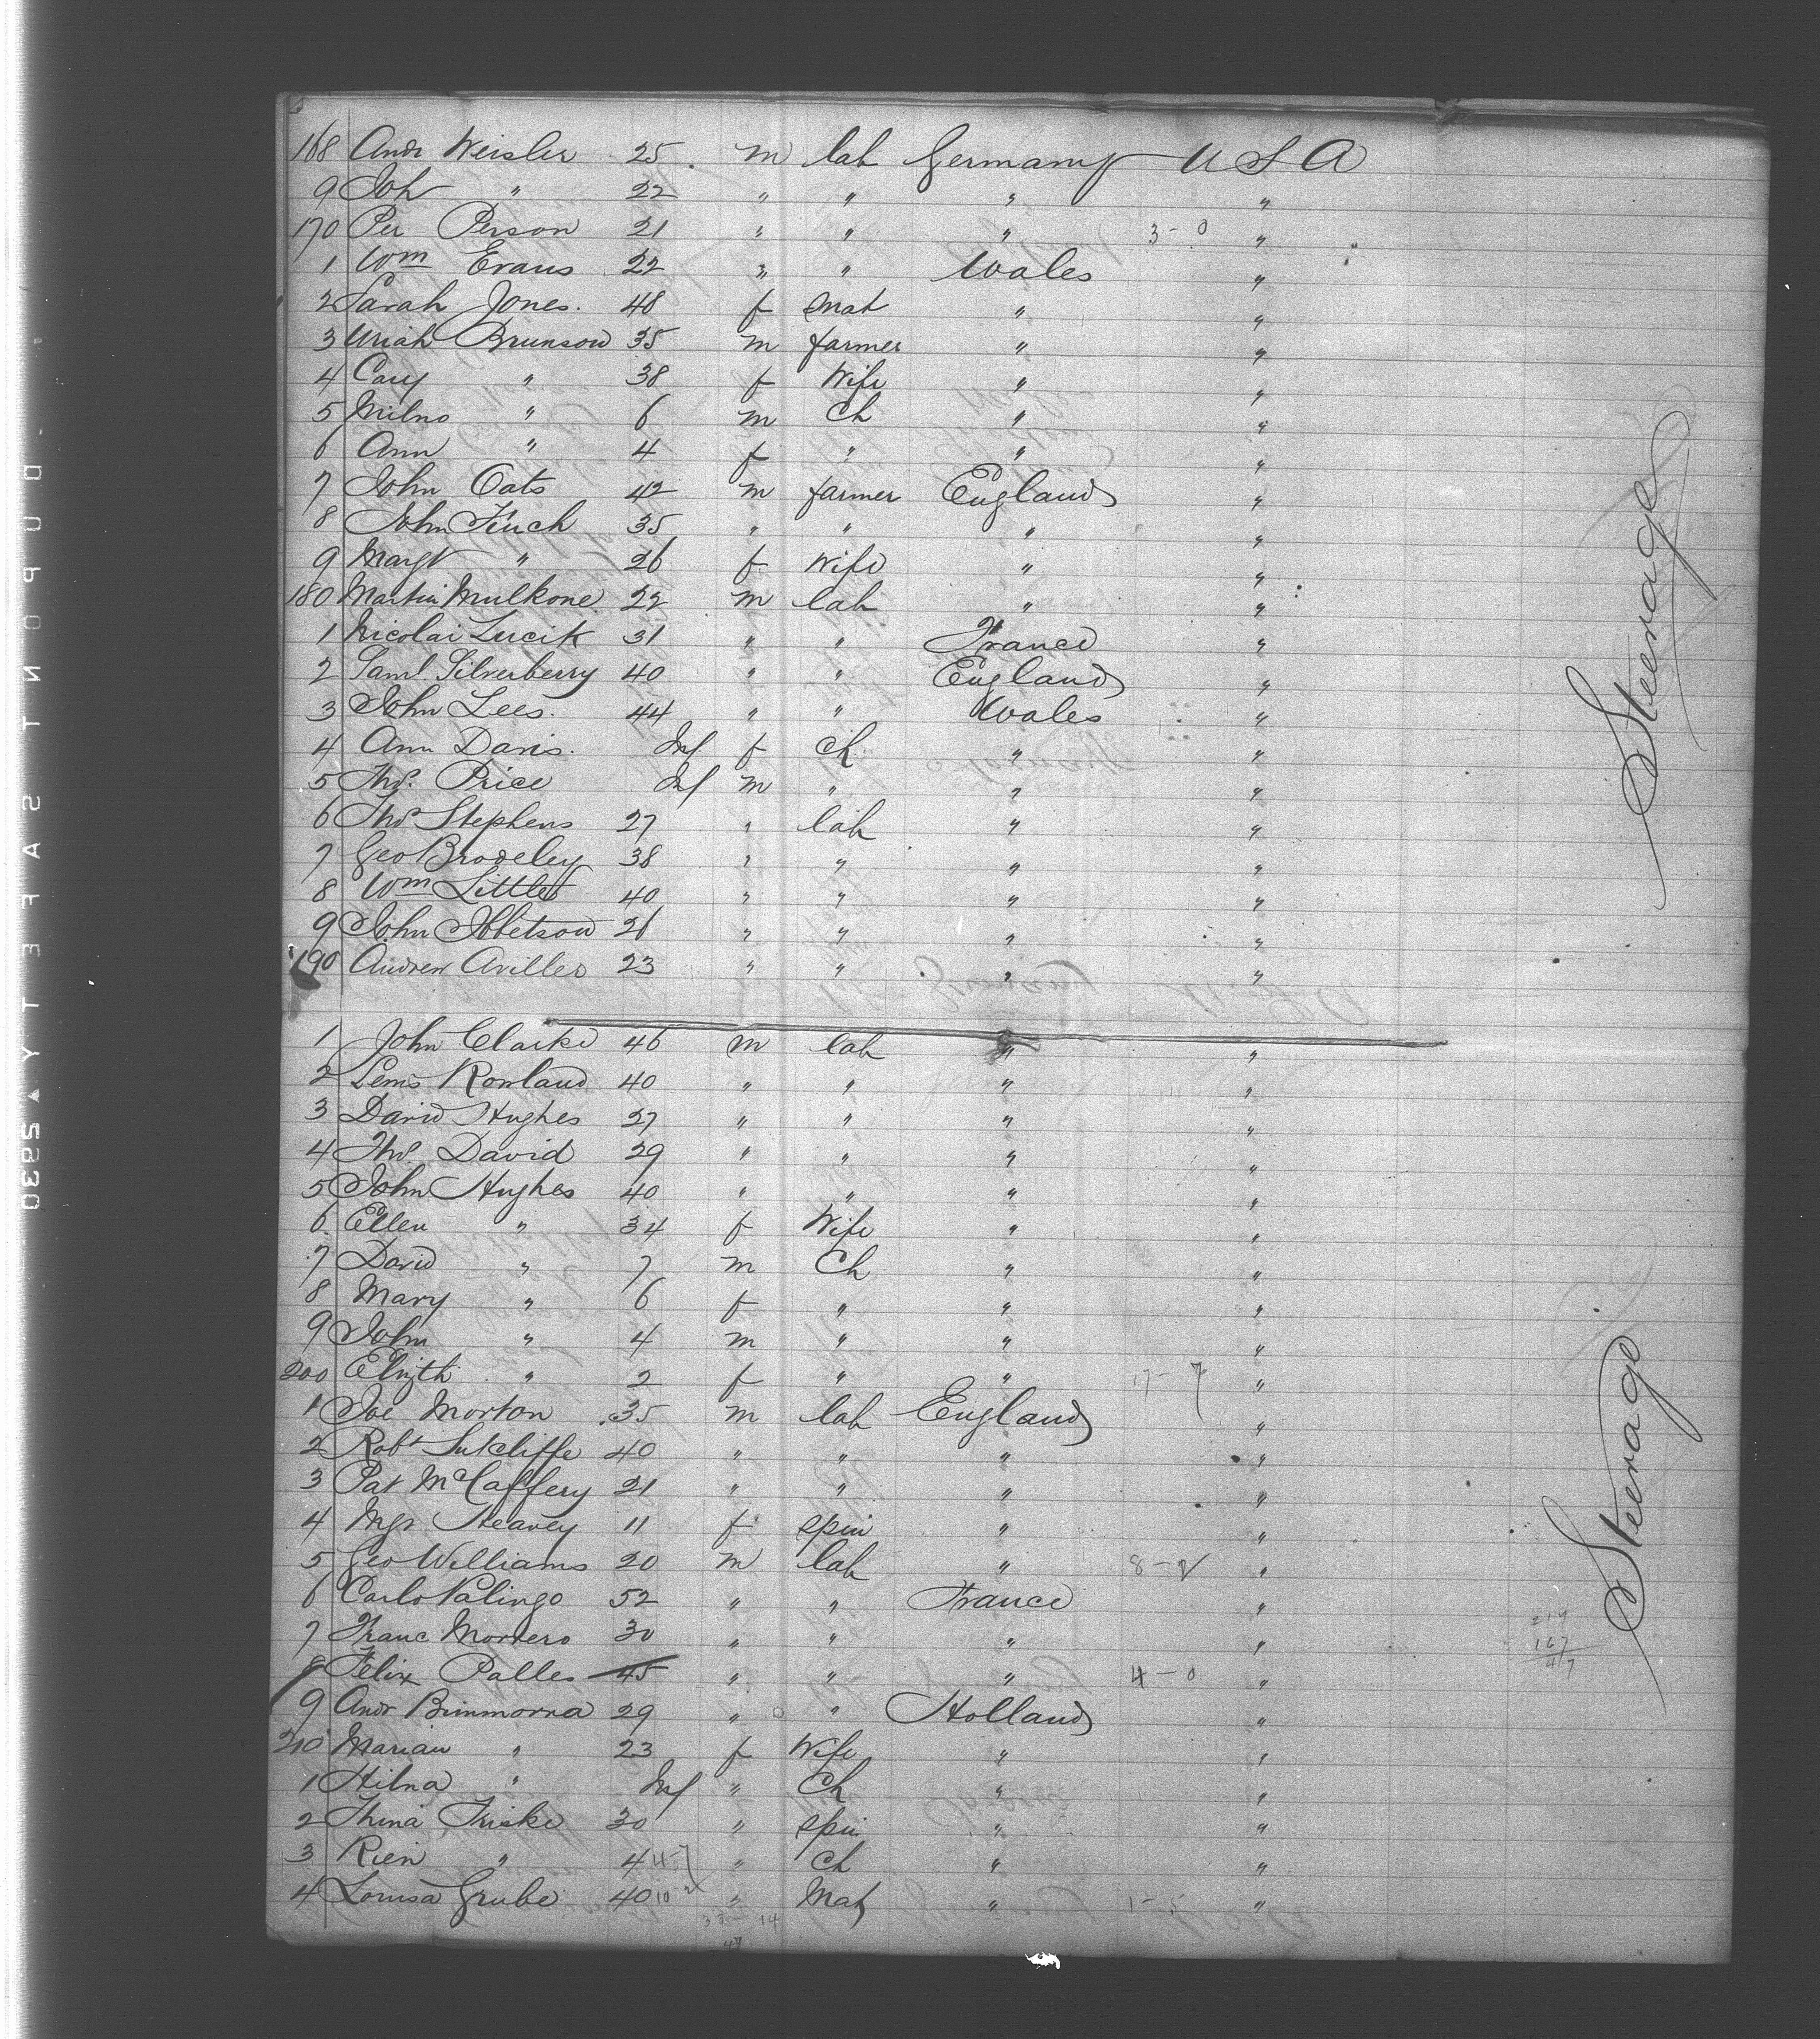 168 Andr Weisler 25 m lab Germany U S A
9 Joh " 22 " " " "
170 Per Person 21 " " " 3-0 "
1 Wm Evans 22 " " Wales "
2 Sarah Jones. 48 f mat " "
3 Uriah Brunson 35 m farmer " "
4 Cary " 38 f Wife " "
5 Milno " 6 m Ch " "
6 Ann " 4 f " " "
7 John Oats 42 m farmer England "
8 John Finch 35 " " " "
9 Margt " 26 f Wife " "
180 Martin Mulkone 22 m lab " "
1 Nicolai Lucik 31 " " France "
2 Saml. Silverberry 40 " " England "
3 John Lees. 44 " " Wales "
4 Ann Davis. Inf f Ch " "
5 Thos. Price Inf m " " "
6 Thos Stephens 27 " lab " "
7 Geo Broseley 38 " " " "
8 Wm Little 40 " " " "
9 John Ibbetson 26 " " " "
190 Andrew Aviller 23 " " " "
1 John Clarke 46 m lab " "
2 Lewis Rowland 40 " " " "
3 David Hughes 27 " " " "
4 Thos. David 29 " " " "
5 John Hughes 40 " " " "
6 Ellen " 34 f Wife " "
7 David " 7 m Ch " "
8 Mary " 6 f " " "
9 John " 4 m " " "
200 Elizth " 2 f " " 17-7 "
1 Joe Morton 35 m lab England "
2 Robt Sutcliffe 40 " " " "
3 Pat McCaffery 21 " " " "
4 Mgt Heavey 11 f spin " "
5 Geo Williams 20 m lab " 8-2 "
6 Carlo Palingo 52 " " France "
7 Franc Mortero 30 " " " "
8 Felix Palles 45 " " " 4-0 "
9 Andr Bimmorra 29 " " Holland "
210 Marian " 23 f Wife " "
1 Hilna " Inf " Ch " "
2 Thina Friske 30 " spin " "
3 Rien " 4 " Ch " "
4 Louisa Grube 40 10-2 " Mat " 1-5 "
33-14
47
Steerage
Steerage
214
167
47
DUPONT SAFETY 25930